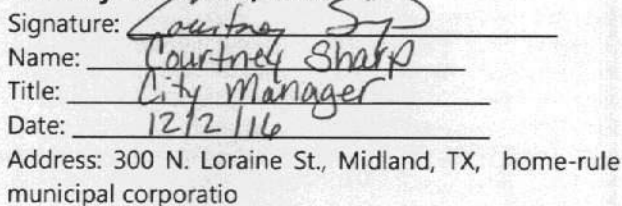 Signature: Courtney
Name: Courtney Sharp
Title: City Manager
Date: 12/2/16
Address: 300 N. Loraine St., Midland, TX, home-rule
municipal corporatio